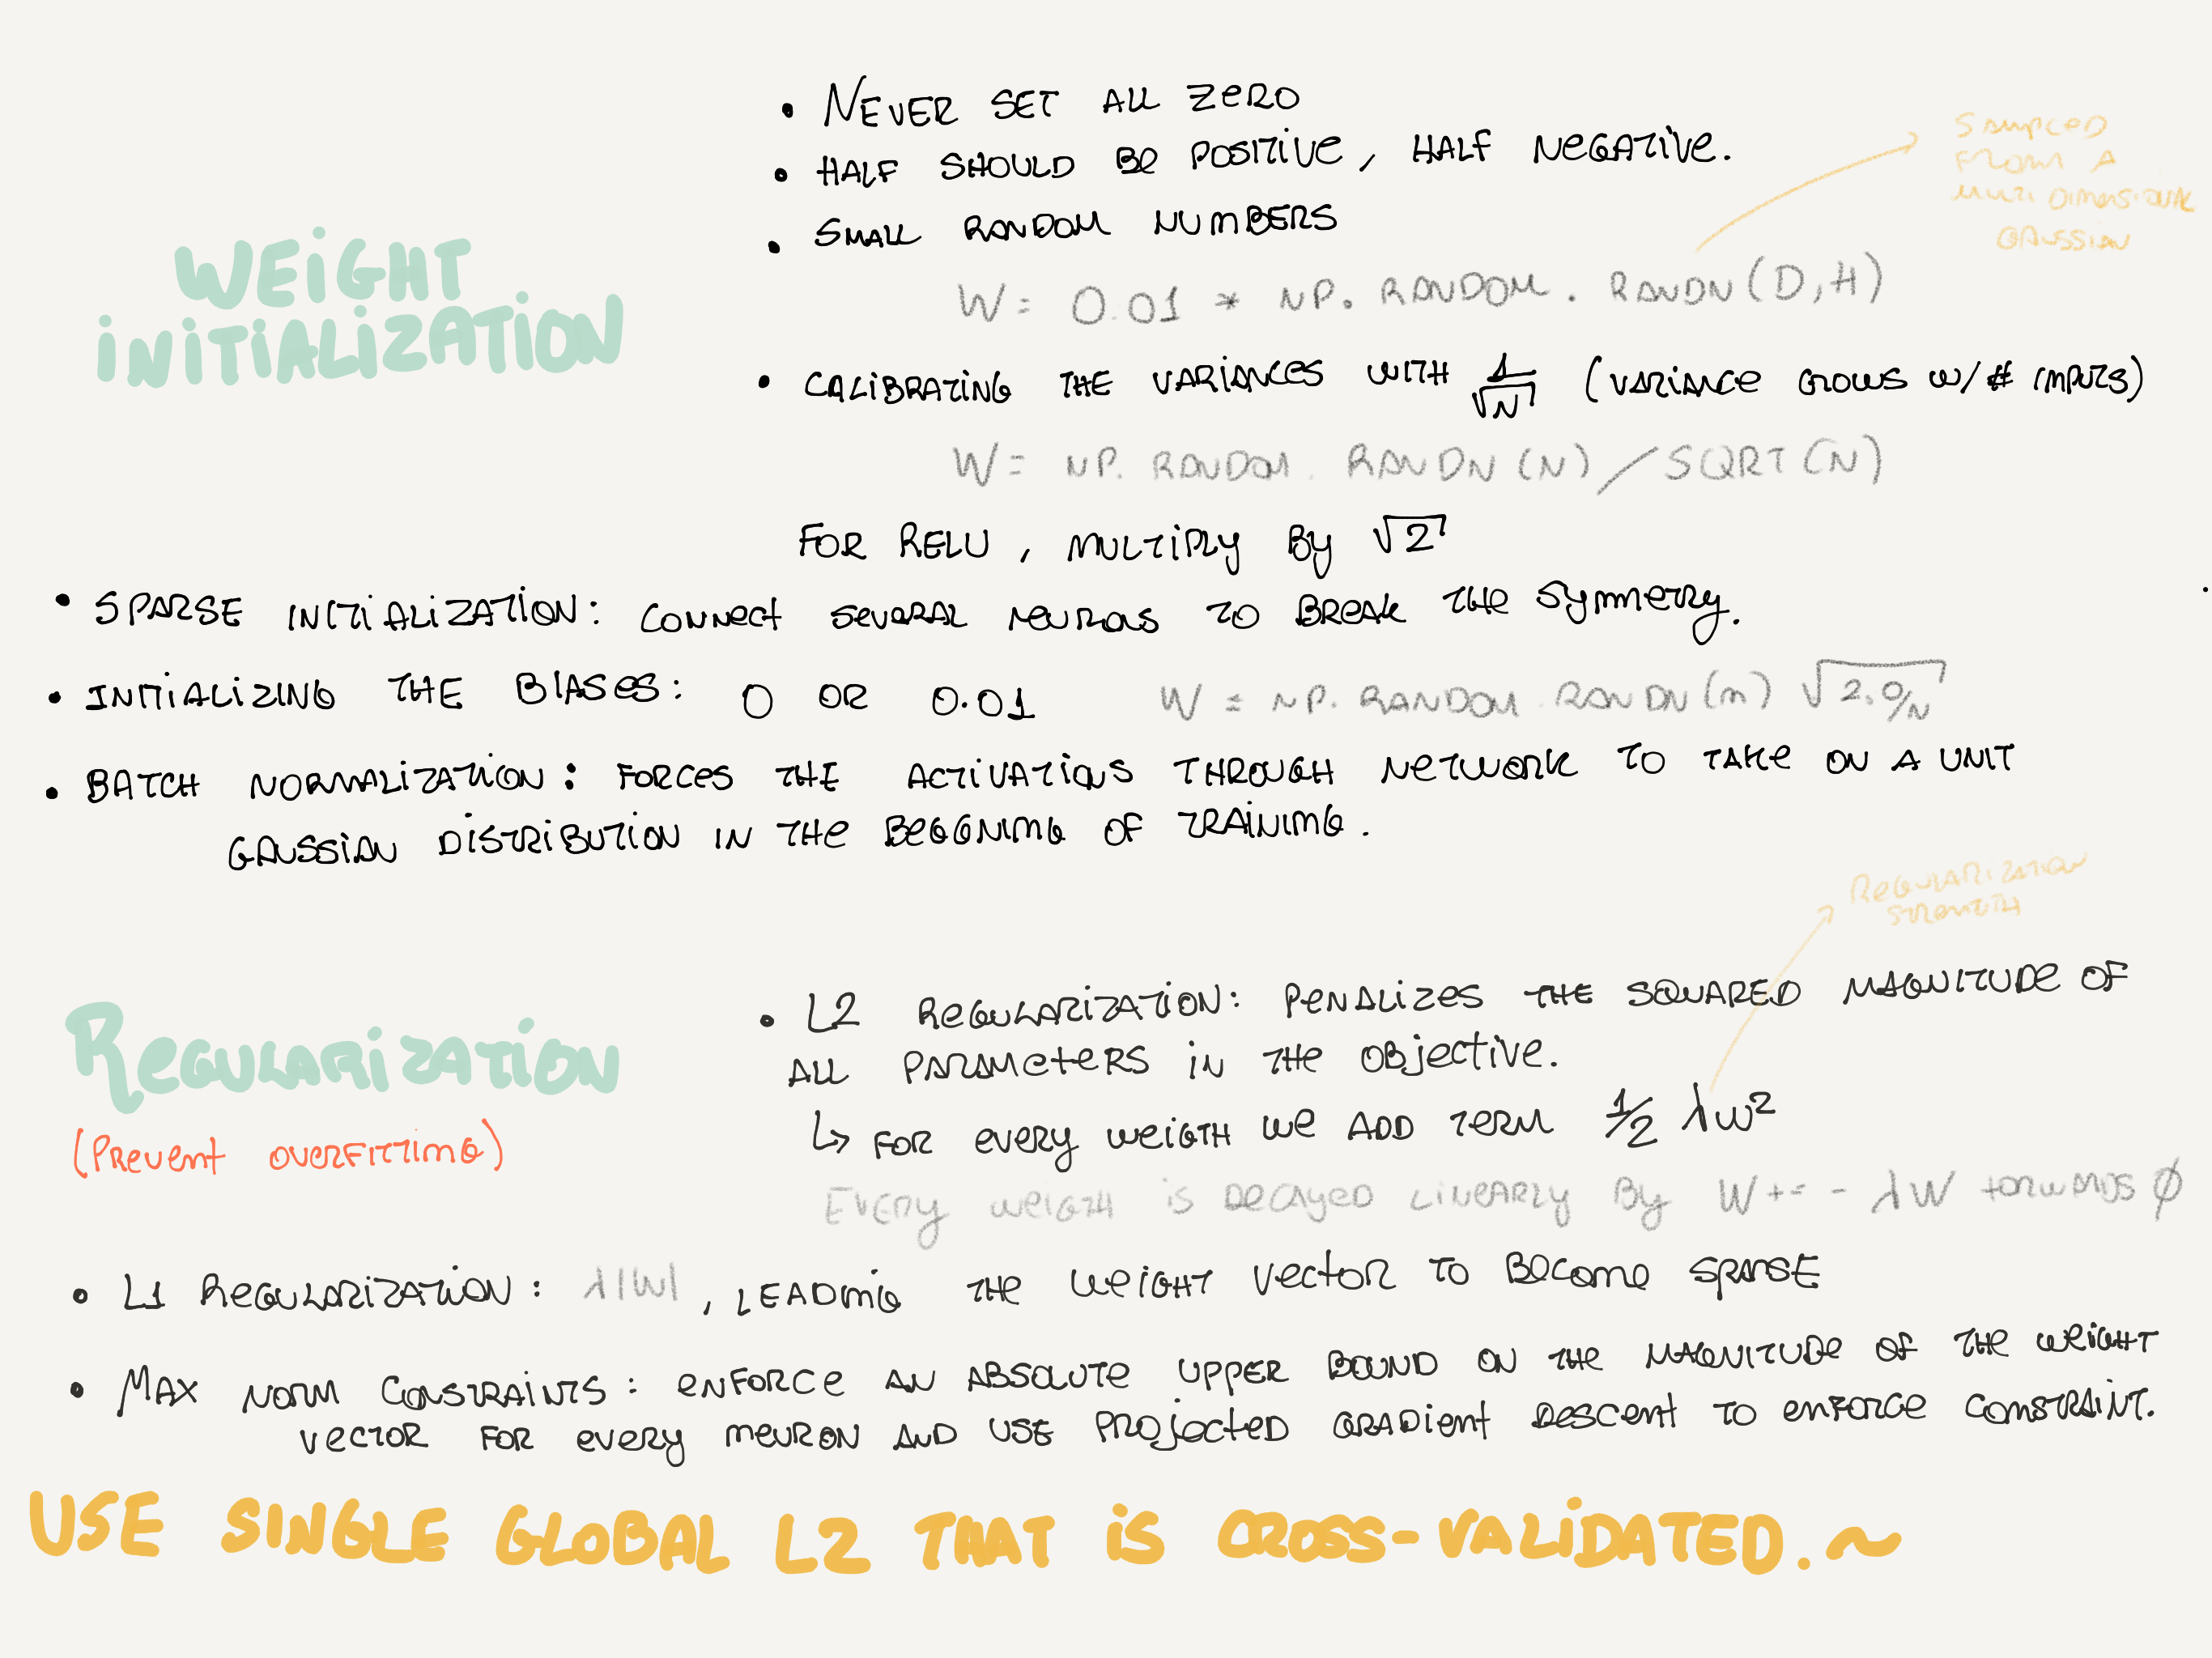 WEIGHT
INITIALIZATION
• NEVER SET ALL ZERO
• HALF SHOULD BE POSITIVE, HALF NEGATIVE.
• SMALL RANDOM NUMBERS
W = 0.01 * NP. RANDOM. RANDN(D,H)
SAMPLED
FROM A
MULTI DIMENSIONAL
GAUSSIAN
• CALIBRATING THE VARIANCES WITH 1/√N (VARIANCE GROWS W/ # INPUTS)
W = NP. RANDOM. RANDN (N) / SQRT (N)
FOR RELU, MULTIPLY BY √2
• SPARSE INITIALIZATION: CONNECT SEVERAL NEURONS TO BREAK THE SYMMETRY.
• INITIALIZING THE BIASES: 0 OR 0.01
W = NP. RANDOM. RANDN (n) √2.0/N
• BATCH NORMALIZATION: FORCES THE ACTIVATIONS THROUGH NETWORK TO TAKE ON A UNIT
GAUSSIAN DISTRIBUTION IN THE BEGGNING OF TRAINING.
REGULARIZATION
(PREVENT OVERFITTING)
REGULARIZATION
STRENGTH
• L2 REGULARIZATION: PENALIZES THE SQUARED MAGNITUDE OF
ALL PARAMETERS IN THE OBJECTIVE.
↳ FOR EVERY WEIGTH WE ADD TERM 1/2 λw²
EVERY WEIGTH IS DECAYED LINEARLY BY W += - λW TORWARDS Ø
• L1 REGULARIZATION: λ|W|, LEADING THE WEIGHT VECTOR TO BECOME SPARSE
• MAX NORM CONSTRAINTS: ENFORCE AN ABSOLUTE UPPER BOUND ON THE MAGNITUDE OF THE WEIGHT
VECTOR FOR EVERY NEURON AND USE PROJECTED GRADIENT DESCENT TO ENFORCE CONSTRAINT.
USE SINGLE GLOBAL L2 THAT IS CROSS-VALIDATED. ~